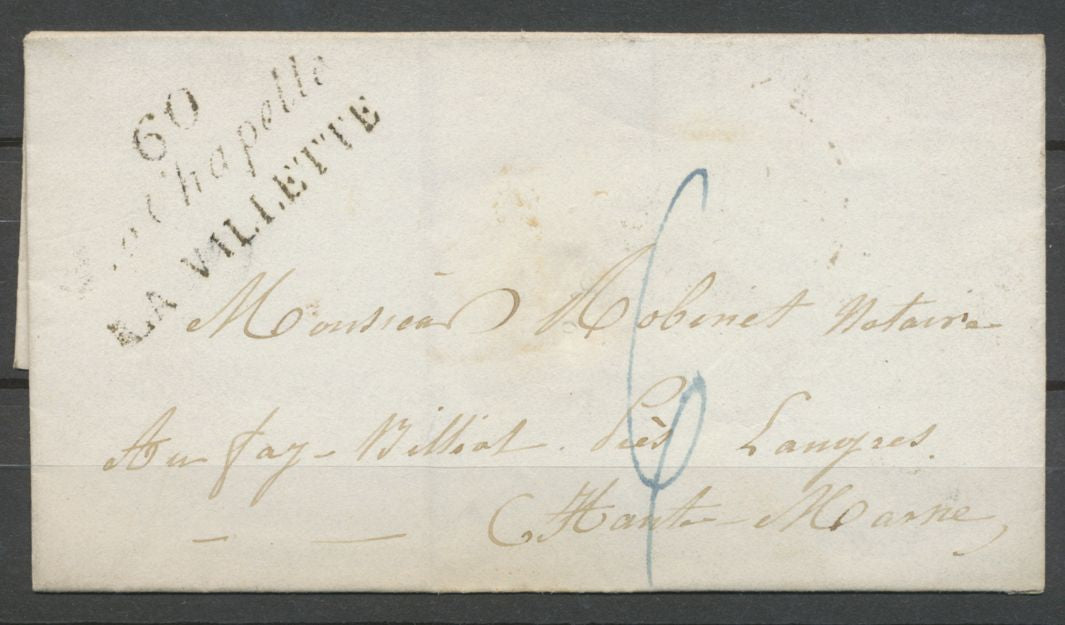 60
La Chapelle
LA VILLETTE
Monsieur Robinet Notaire
Au fay-Billiot. Près Langres.
Haute-Marne
6